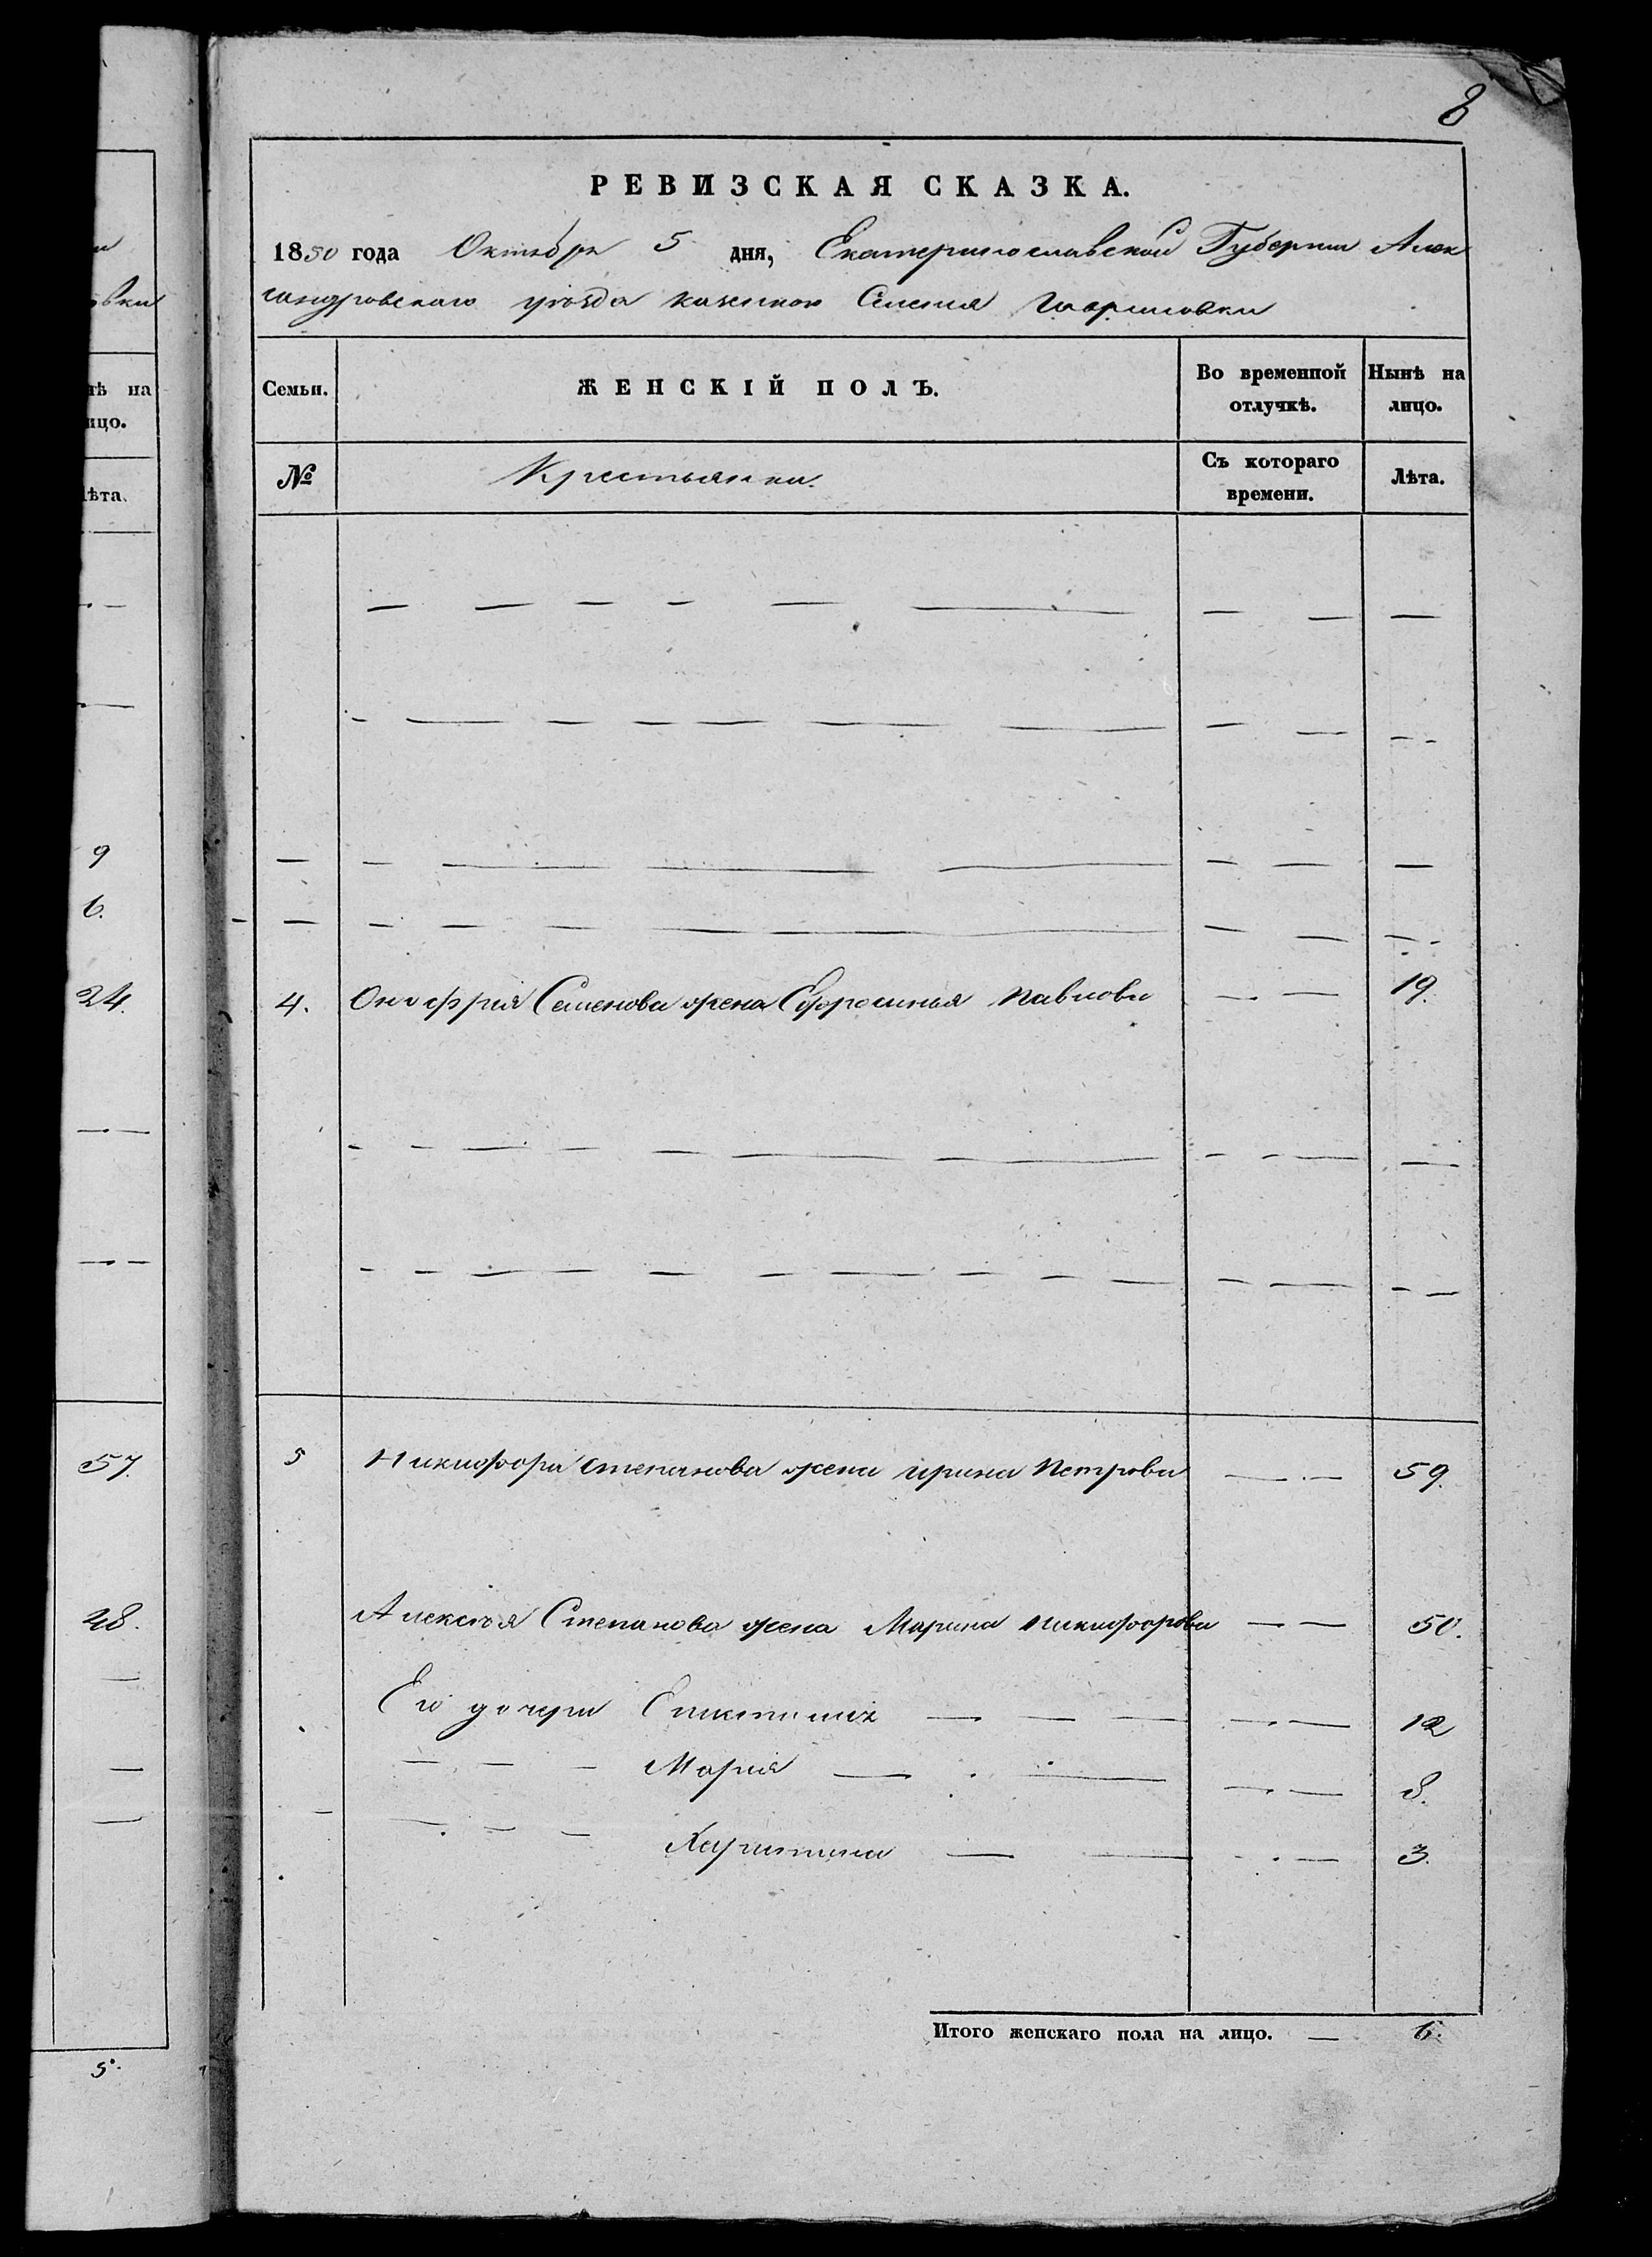 8
РЕВИЗСКАЯ СКАЗКА.
1850 года Октября 5 дня, Екатеринославской Губернии Алек
сандровскаго уѣзда казенного Селения Гавриловки
Семьи.
ЖЕНСКІЙ ПОЛЪ.
Во временной отлучкѣ.
Нынѣ на лицо.
№
Крестьянки.
Съ котораго времени.
Лѣта.
4. Онофрія Семенова жена Ефросинья Павлова — — 19.
5 Никифора Степанова жена Ирина Петрова — — 59.
Алексѣя Степанова жена Марина Никифорова — — 50.
Его дочери Епистимія — — — — — 12
— — — Марія — — — — 8.
— — — Харитина — — — — 3.
Итого женскаго пола на лицо. — 6.
овки
нѣ на
ицо.
ѣта.
9
6.
24.
57.
48.
5.